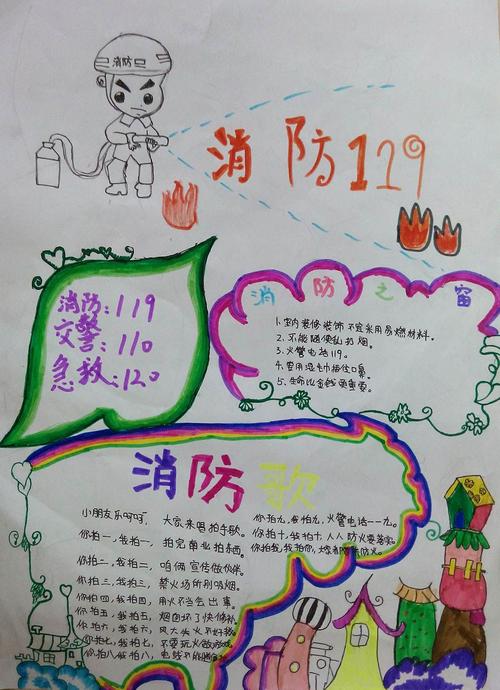 消防
消防119
消防:119
交警:110
急救:120
消防之窗
1.室内装修装饰不宜采用易燃材料。
2.不能随便乱扔烟。
3.火警电话119。
4.要用湿毛巾捂住口鼻。
5.生命比金钱更重要。
消防歌
小朋友乐呵呵,大家来唱拍手歌。
你拍一,我拍一,拍完
你拍二,我拍二,咱俩宣传做伙伴
你拍三,我拍三,禁火场所别吸烟。
你拍四,我拍四,用火不当会出事。
你拍五,我拍五,烟囱坏了快修补
你拍六,我拍六,风大
你拍七,我拍七,不要玩火做游戏
你拍八,我拍八,电线不能
你拍九,我拍九,火警电话一一九。
你拍十,我拍十,人人防火要落实。
你拍我,我拍你,